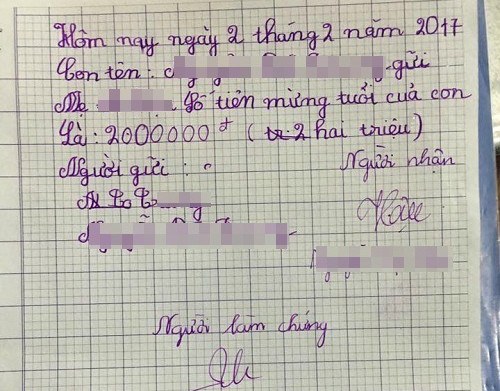 Hôm nay ngày 2 tháng 2 năm 2017
Con tên: gửi
Mẹ Số tiền mừng tuổi của con
Là: 2000000đ (2 hai triệu)
Người gửi:
Người nhận
Người làm chứng